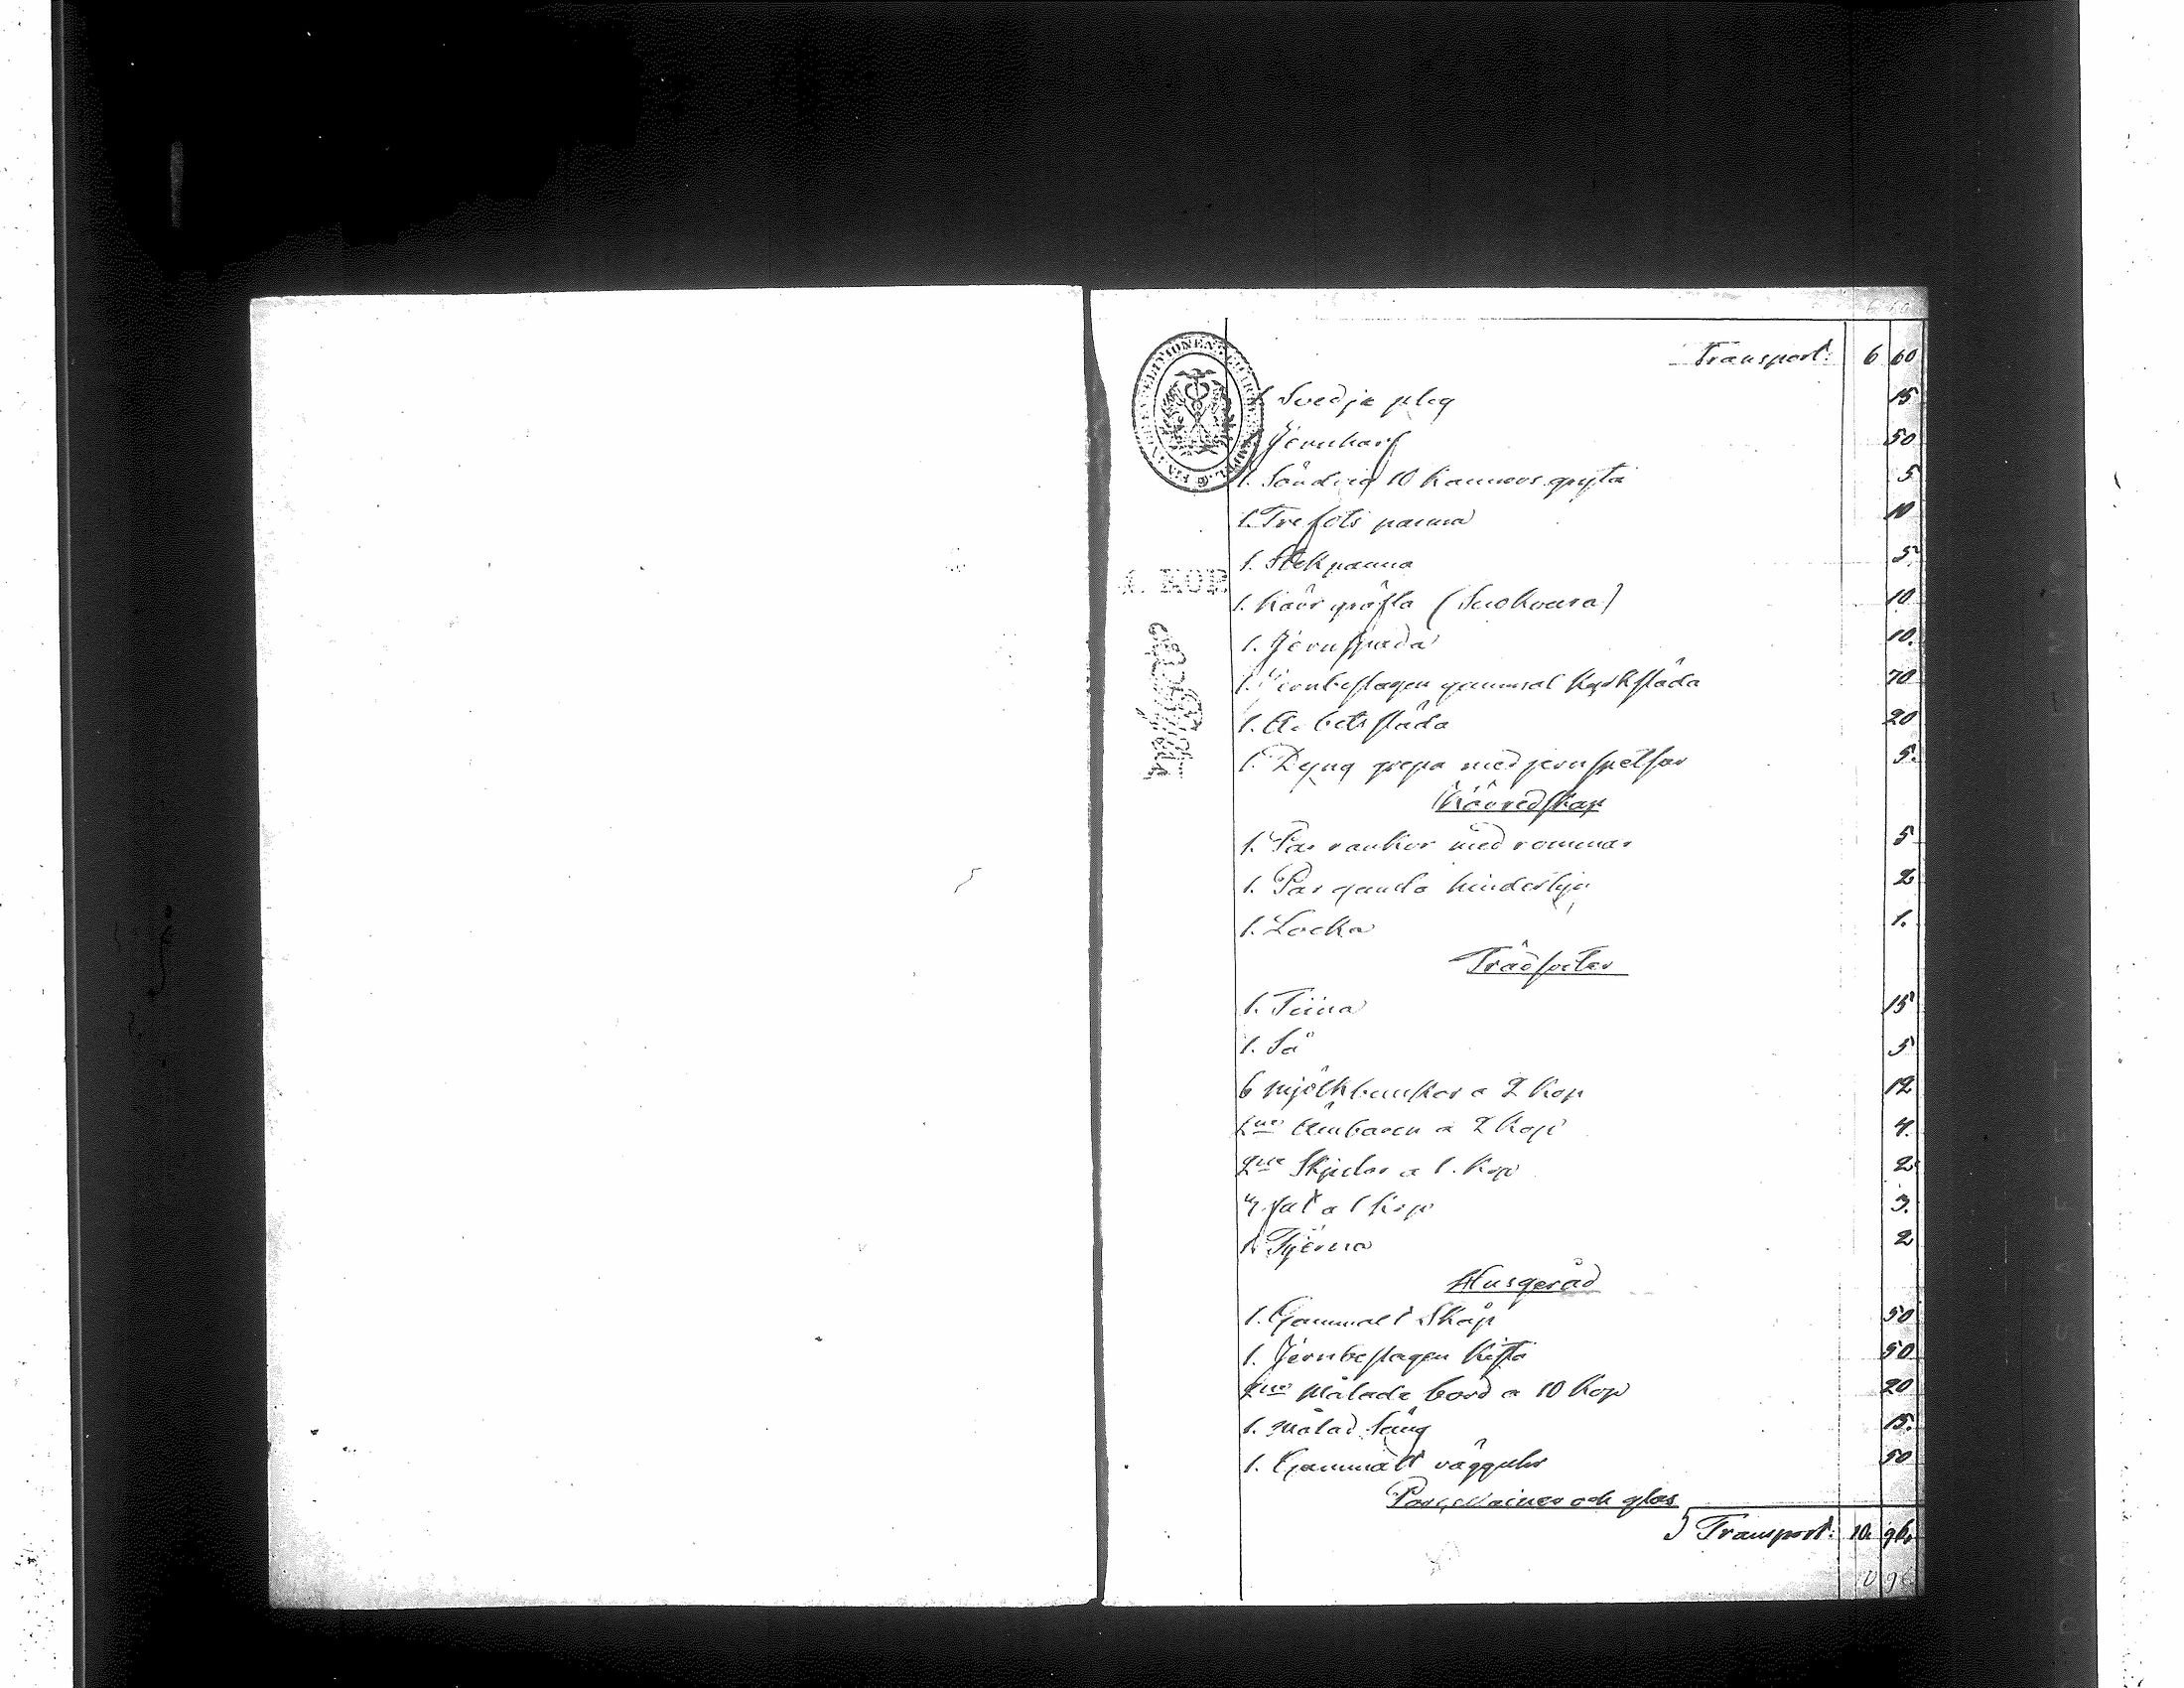 Transport: 6 60
1 Svedje plog 15
1 Jernharf 50
1. Söndrig 10 kannors gryta 5
1. Trefots panna 10
1. Stekpanna 5
1. Kärr gräfta (Suokuura) 10
1. Jernspada 10.
1. Jernbeslagen gammal Kyrksläda 70
1. Arbetssläda 20
1. Dyng grepa med jernspetsar 5.
Körredskap
1. Par rankor med rommar 5
1. Par gamla 2
1. Locka 1.
Trädsaker
1. Tiina 15
1. Så 5
6 mjölkbunkar a 2 Kop 12
2ne Ämbaren a 2 Kop 4.
2ne Stjelar a 1. Kop 2
3 fat a 1 Kop 3.
1. Tjerna 2
Husgeråd
1. Gammalt Skåp 50
1. Jernbeslagen Kista 50
2ne Målade bord a 10 Kop 20
1. Målad Säng 15.
1. Gammalt vägguhr 50
Porcellainer och glas
Transport: 10. 96.
10 96